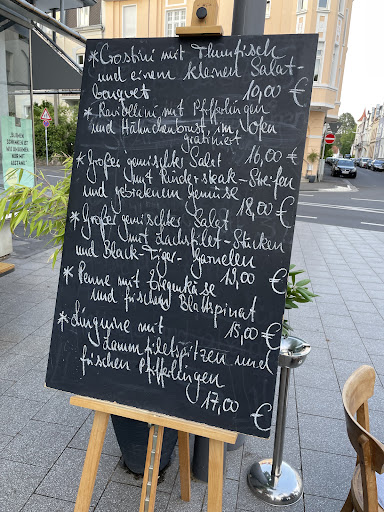 * Crostini mit Thunfisch
und einem kleinen Salat-
bouquet 10,00 €
* Ravellini mit Pfifferlingen
und Hähnchenbrust, im Ofen
gratiniert
16,00 €
* Großer gemischter Salat
mit Rindersteak-Streifen
und gebratenem Gemüse
18,00 €
* Großer gemischter Salat
mit Lachsfilet-Stücken
und Black-Tiger-Garnelen
19,00 €
* Penne mit Ziegenkäse
und frischem Blattspinat
15,00 €
* Linguine mit
Lammfiletspitzen und
frischen Pfifferlingen
17,00 €